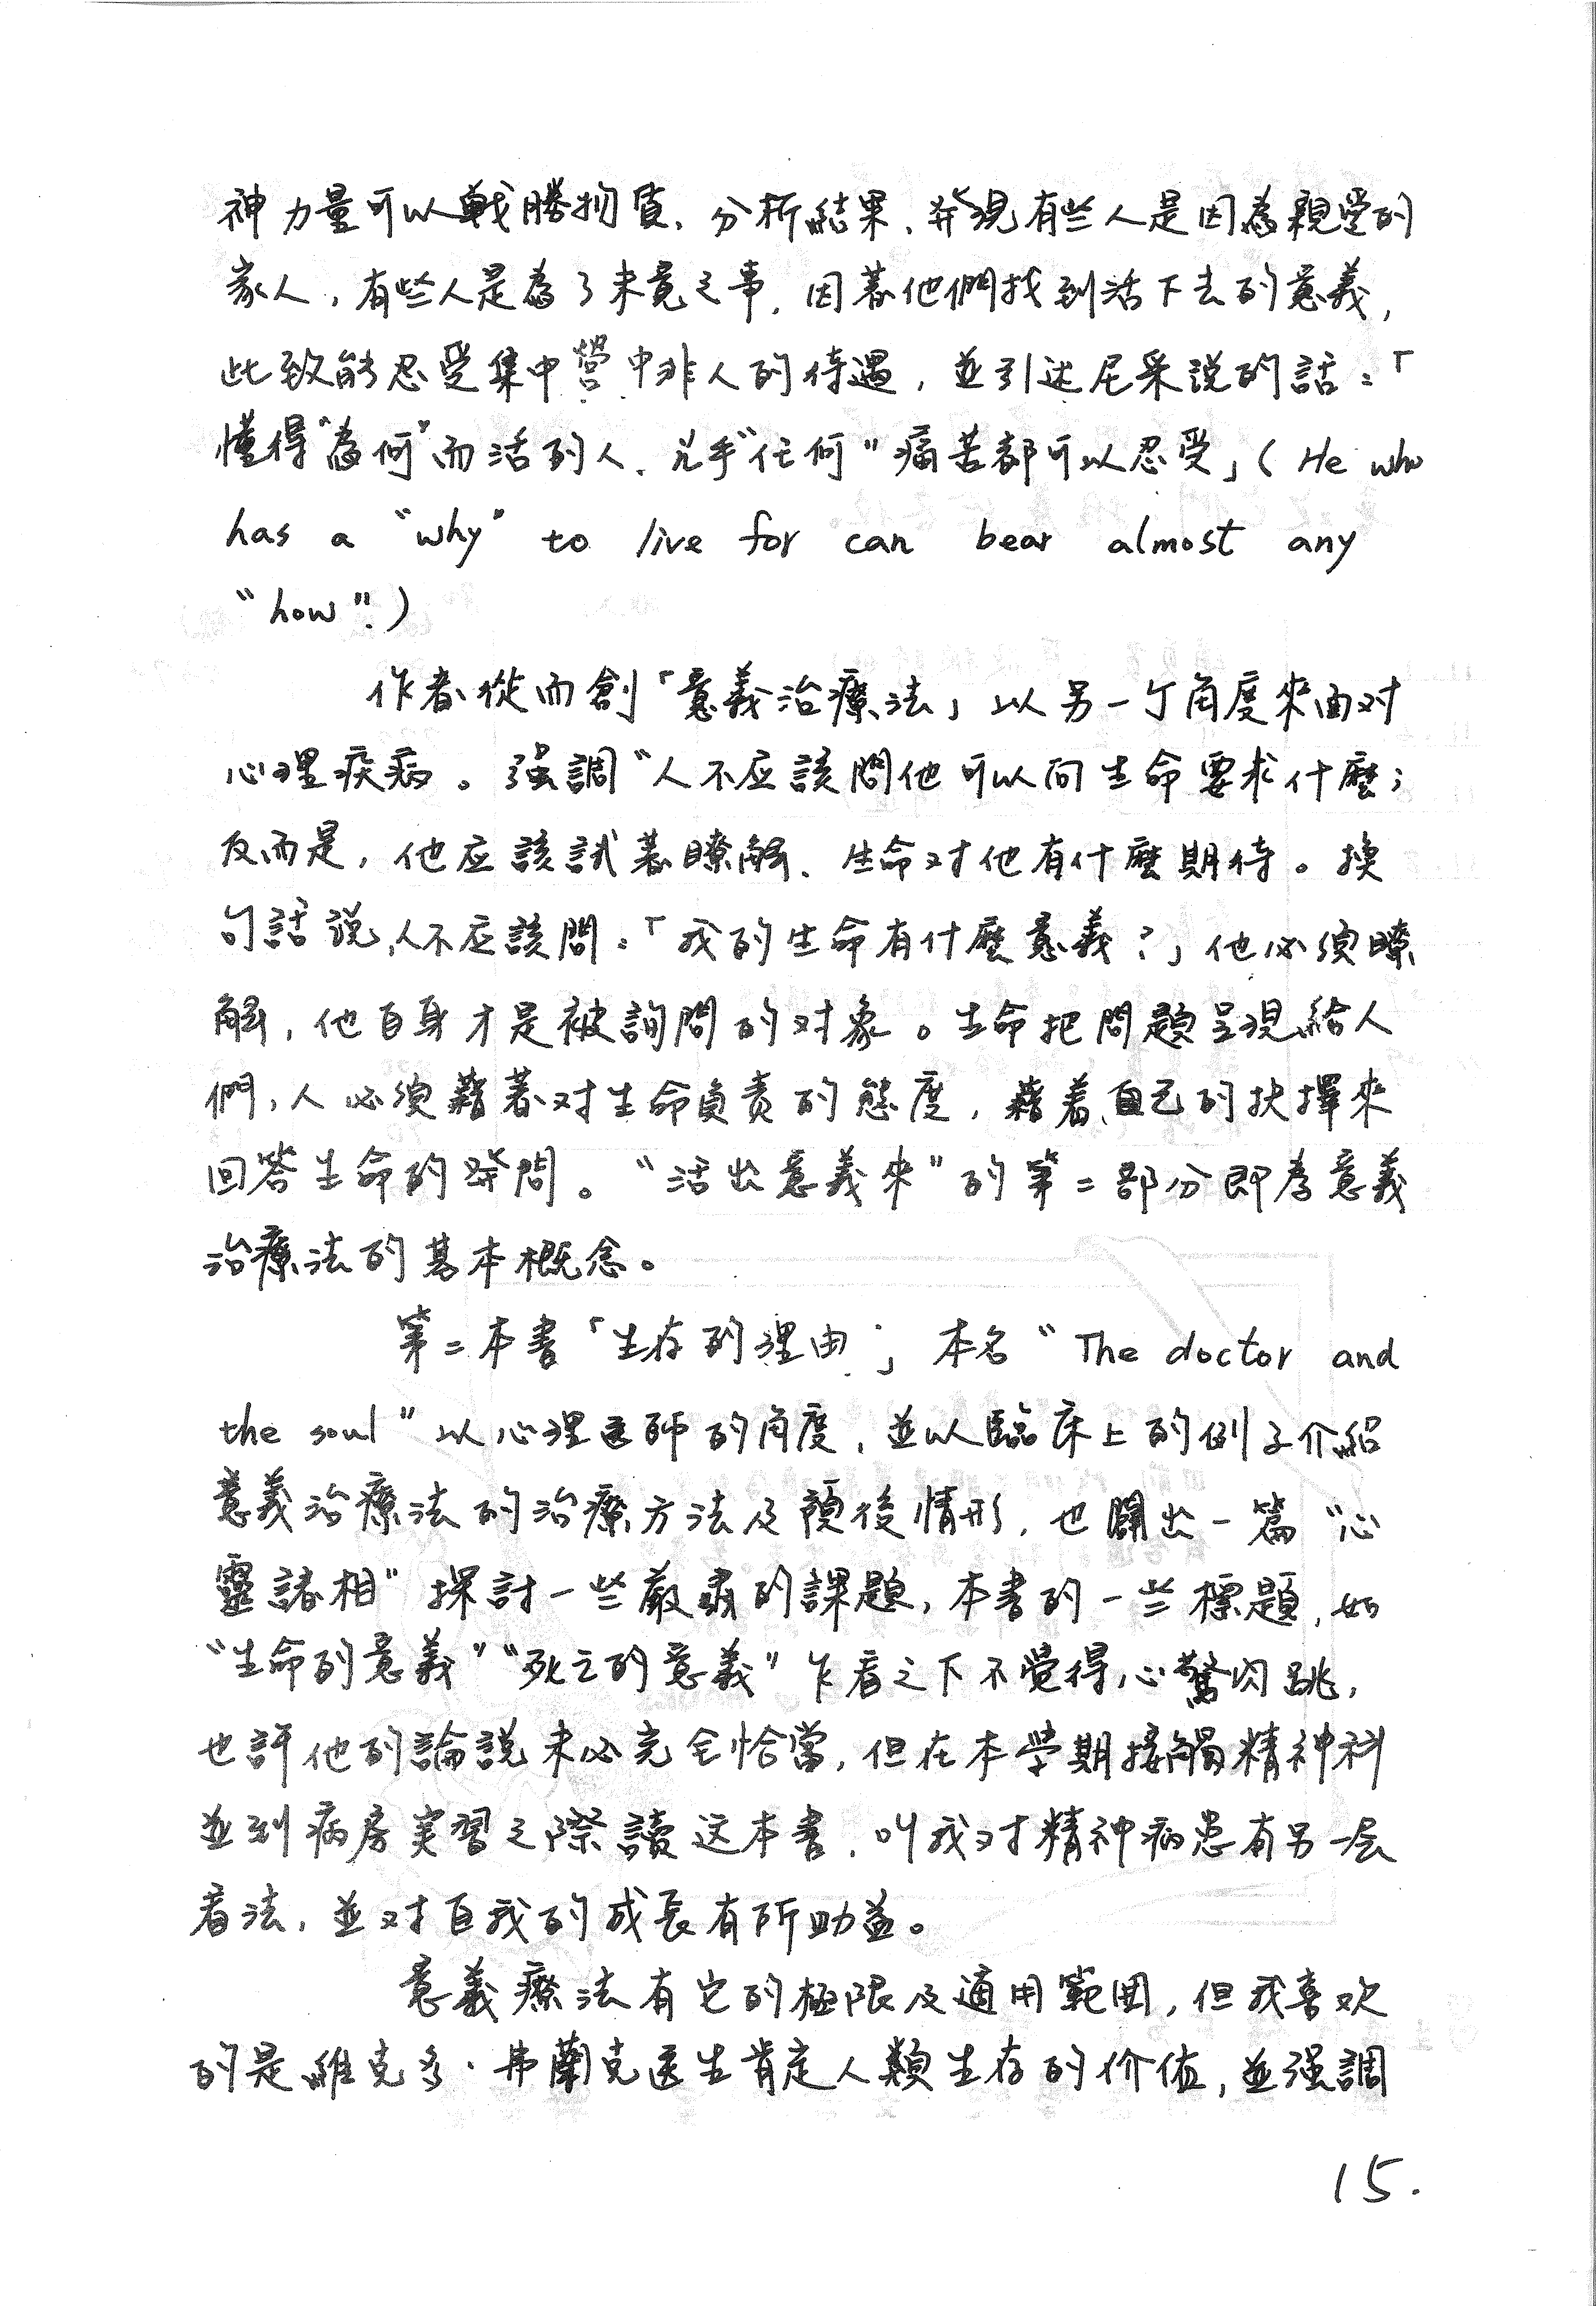 神力量可以戰勝物質、分析結果、发現有些人是因為親愛的
家人，有些人是為了未竟之事，因著他們找到活下去的意義，
此致能忍受集中營中非人的待遇，並引述尼采說的話：「
懂得“為何”而活的人、几乎“任何”痛苦都可以忍受」(He who
has a “why” to live for can bear almost any
“how”.)
作者從而創「意義治療法」以另一个角度來面对
心理疾病。强調“人不应該問他可以向生命要求什麼；
反而是，他应該試著瞭解、生命对他有什麼期待。換
句話說，人不应該問：「我的生命有什麼意義？」他必須瞭
解，他自身才是被詢問的对象。生命把問題呈現給人
們，人必須藉著对生命負责的態度，藉着自己的抉擇來
回答生命的発問。“活出意義來”的第二部分即為意義
治療法的基本概念。
第二本書「生存的理由」本名“The doctor and
the soul”以心理医師的角度，並以臨床上的例子介紹
意義治療法的治療方法及預後情形，也闢出一篇“心
靈諸相”探討一些嚴肅的課題，本書的一些標題，如
“生命的意義”“死亡的意義”乍看之下不覺得心驚肉跳，
也許他的論說未必完全恰當，但在本學期接觸精神科
並到病房实習之際讀这本書，叫我对精神病患有另一层
看法，並对自我的成長有所助益。
意義療法有它的極限及適用範囲，但我喜欢
的是維克多·弗蘭克医生肯定人類生存的价值，並强調
15.